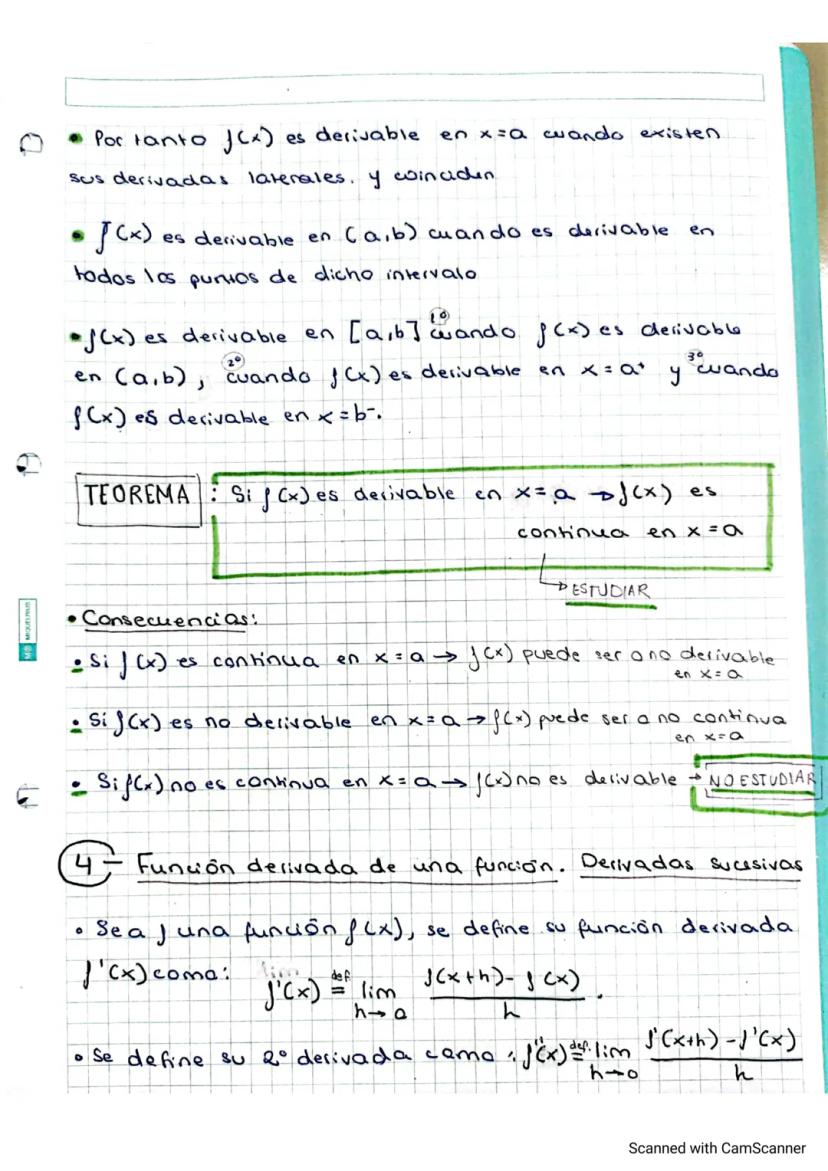 • Por tanto f(x) es derivable en x=a cuando existen
sus derivadas laterales, y coinciden
• f(x) es derivable en (a,b) cuando es derivable en
todos los puntos de dicho intervalo
• f(x) es derivable en [a,b] 1º cuando f(x) es derivable
en (a,b), 2º cuando f(x) es derivable en x=a⁺ y 3º cuando
f(x) es derivable en x=b⁻.
TEOREMA : Si f(x) es derivable en x=a → f(x) es
continua en x=a
↳ ESTUDIAR
• Consecuencias:
• Si f(x) es continua en x=a → f(x) puede ser o no derivable
en x=a
• Si f(x) es no derivable en x=a → f(x) puede ser o no continua
en x=a
• Si f(x) no es continua en x=a → f(x) no es derivable → NO ESTUDIAR
4 - Función derivada de una función. Derivadas sucesivas
• Sea f una función f(x), se define su función derivada
f'(x) como: f'(x) def= lim h→0 (f(x+h) - f(x))/h.
• Se define su 2º derivada como: f''(x) def.= lim h→0 (f'(x+h) - f'(x))/h
MIQUELRIUS
Scanned with CamScanner